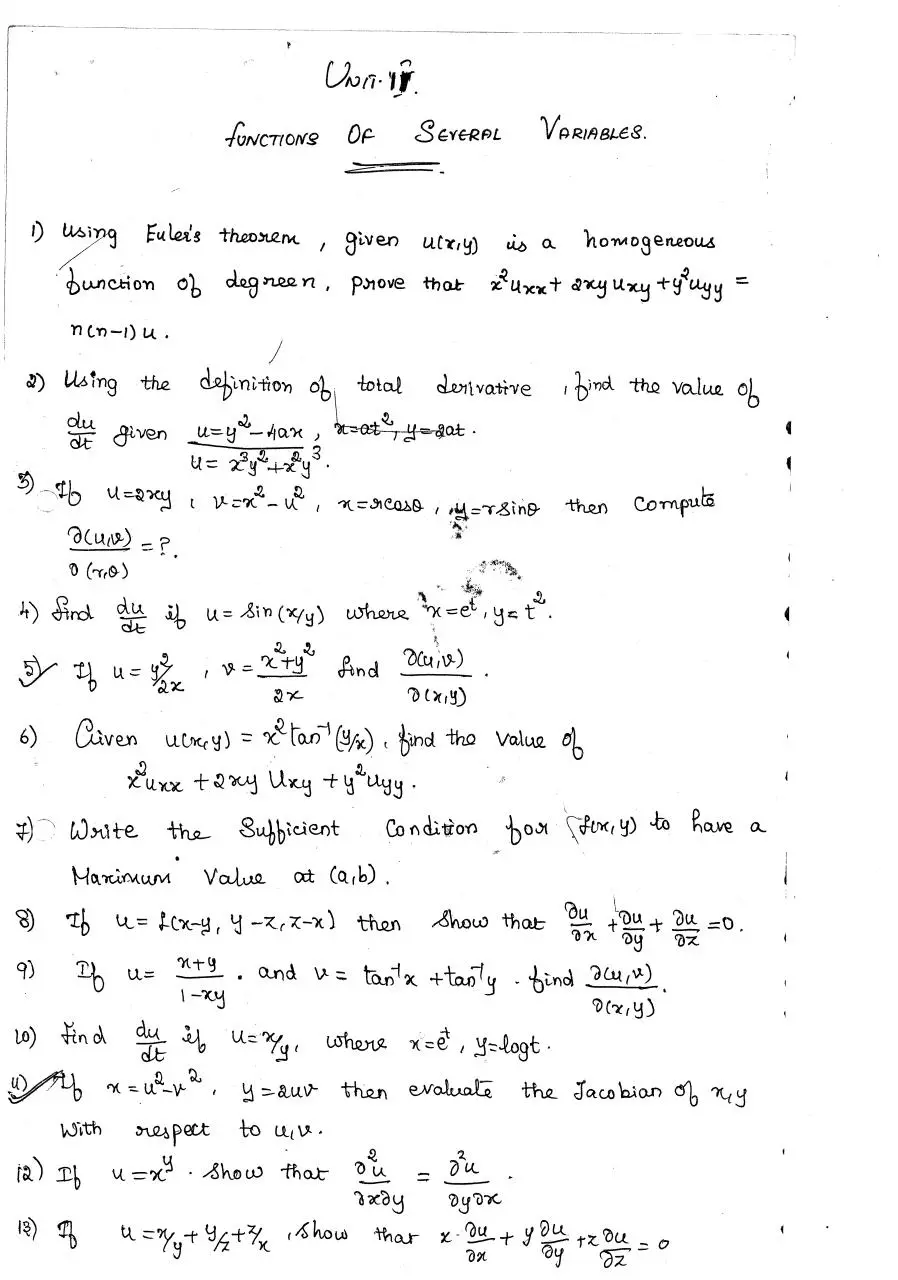 UNIT-II.
FUNCTIONS OF SEVERAL VARIABLES.
1) Using Euler's theorem, given u(x,y) is a homogeneous
function of degree n, prove that x²uxx + 2xy uxy + y²uyy =
n(n-1)u.
2) Using the definition of total derivative, find the value of
du/dt given u=y²-4ax, x=at², y=2at.
u= x³y²+x²y³.
3) If u=2xy, v=x²-u², x=rcosθ, y=rsinθ then compute
∂(u,v)/∂(r,θ) = ?.
4) find du/dt if u= sin(x/y) where x=eᵗ, y=t².
5) If u=y²/2x, v= x²+y²/2x find ∂(u,v)/∂(x,y).
6) Given u(x,y) = x²tan⁻¹(y/x), find the value of
x²uxx + 2xy Uxy + y²uyy.
7) Write the Sufficient Condition for f(x,y) to have a
Maximum Value at (a,b).
8) If u= f(x-y, y-z, z-x) then show that ∂u/∂x + ∂u/∂y + ∂u/∂z = 0.
9) If u= x+y/1-xy. and v= tan⁻¹x + tan⁻¹y. find ∂(u,v)/∂(x,y).
10) find du/dt if u=x/y, where x=eᵗ, y=logt.
11) If x=u²-v², y=2uv then evaluate the Jacobian of x,y
With respect to u,v.
12) If u=xʸ. show that ∂²u/∂x∂y = ∂²u/∂y∂x.
13) If u=x/y+y/z+z/x, show that x.∂u/∂x + y ∂u/∂y + z ∂u/∂z = 0